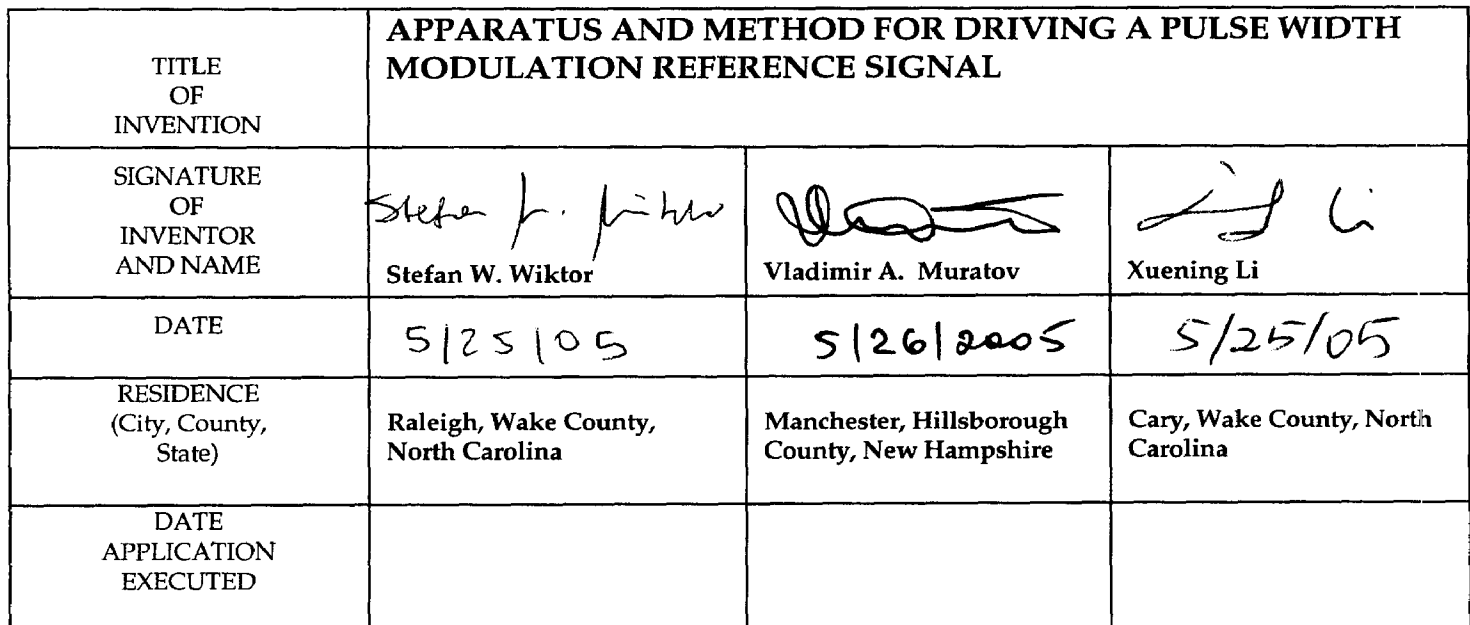 TITLE
OF
INVENTION
APPARATUS AND METHOD FOR DRIVING A PULSE WIDTH
MODULATION REFERENCE SIGNAL
SIGNATURE
OF
INVENTOR
AND NAME
Stefan W. Wiktor
Stefan W. Wiktor
Vladimir A. Muratov
Li
Xuening Li
DATE
5/25/05
5/26/2005
5/25/05
RESIDENCE
(City, County,
State)
Raleigh, Wake County,
North Carolina
Manchester, Hillsborough
County, New Hampshire
Cary, Wake County, North
Carolina
DATE
APPLICATION
EXECUTED